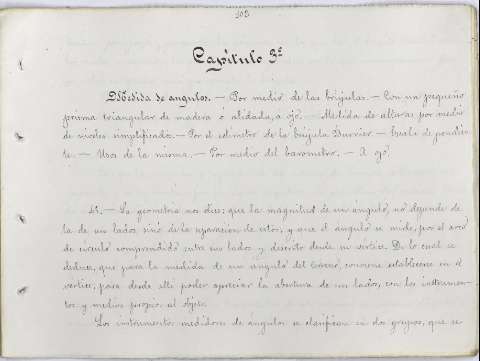 103
Capítulo 3º
Medida de angulos. — Por medio de las brújulas. — Con un pequeño
prisma triangular de madera ó alidada, a ojo. — Medida de alturas por medio
de niveles simplificados. — Por el eclimetro de la brújula Burnier. — Escala de pendien-
te. — Usos de la misma. — Por medio del barometro. — A ojo
41. — La geometria nos dice: que la magnitud de un angulo, no depende de
la de un lados, sino de la separacion de estos; y que el angulo se mide, por el arco
de circulo comprendido entre sus lados y descrito desde su vertice. De lo cual se
deduce, que para la medida de un angulo del terreno, conviene establecerse en el
vertice, para desde alli poder apreciar la abertura de sus lados, con los instrumen-
tos y medios propios al objeto.
Los instrumentos medidores de angulos se clasifican en dos grupos, que se